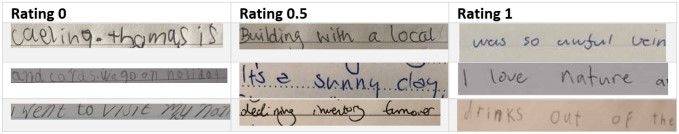 Rating 0 Rating 0.5 Rating 1
caeling. thomas is Building with a local was so awful vein
and cara s. we go on holidat It's a sunny day. I love nature a
I went to visit My nan declining inventory turnover drinks out of the